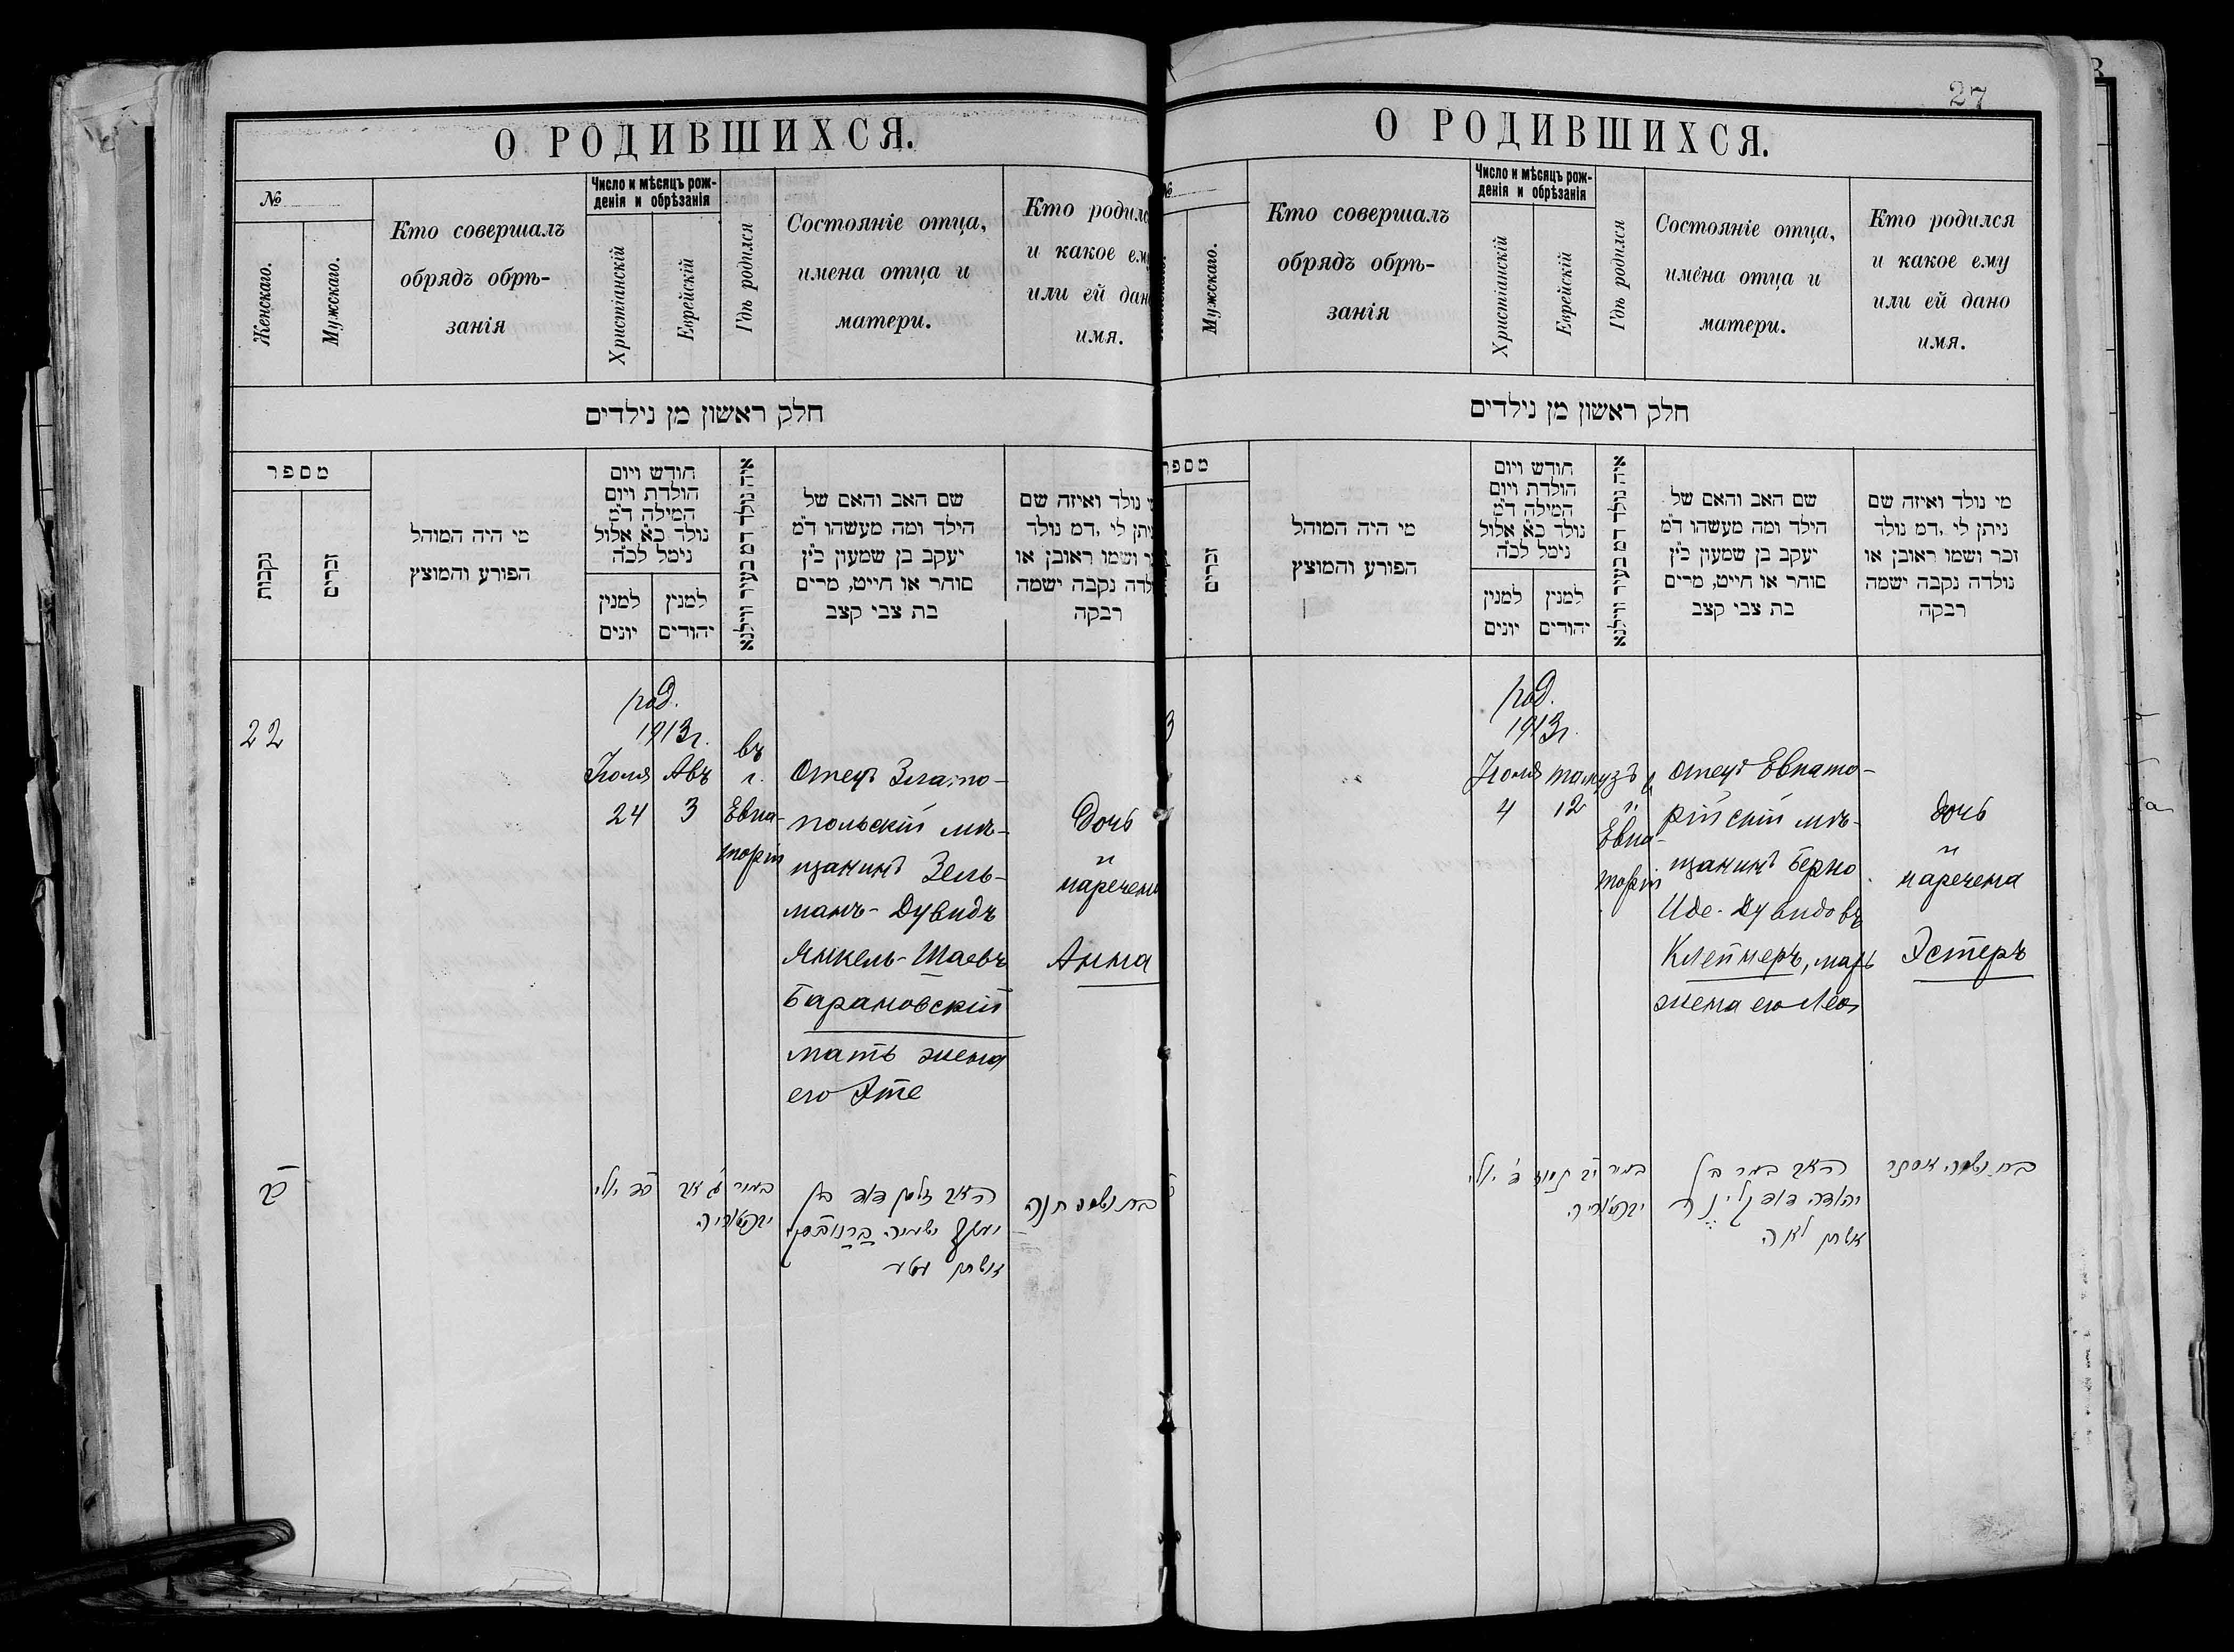 О РОДИВШИХСЯ.
№
Женскаго.
Мужскаго.
Кто совершалъ
обрядъ обрѣ-
занія
Число и мѣсяцъ рож-
денія и обрѣзанія
Христіанскій
Еврейскій
Гдѣ родился
Состояніе отца,
имена отца и
матери.
Кто родилс
и какое ему
или ей дан
имя.
חלק ראשון מן נילדים
מספר
נקבות
זכרים
מי היה המוהל
הפורע והמוצץ
חודש ויום
הולדת ויום
המילה ד״מ
נולד כ״א אלול
נימל לכ״ה
למנין
יונים
למנין
יהודים
איה נולד דמ בעיר ווילנא
שם האב והאם של
הילד ומה מעשהו ד״מ
יעקב בן שמעון כ״ץ
סוחר או חייט, מרים
בת צבי קצב
נולד ואיזה שם
יתן לי, דמ נולד
ושמו ראובן או
לדה נקבה ישמה
רבקה
22
род.
1913г.
Іюля Авъ
24 3
въ
г.
Евпа-
торіи
Отецъ Злато-
польскій мѣ-
щанинъ Зель-
манъ-Дувидъ
Янкель-Шаевъ
Барановскій
мать жена
его Эте
Дочь
и
наречена
Анна
כב
בעיר
האב זלמן דוד בן
אשתו
בת ושמה חנה
27
О РОДИВШИХСЯ.
№
Мужскаго.
Кто совершалъ
обрядъ обрѣ-
занія
Число и мѣсяцъ рож-
денія и обрѣзанія
Христіанскій
Еврейскій
Гдѣ родился
Состояніе отца,
имена отца и
матери.
Кто родился
и какое ему
или ей дано
имя.
חלק ראשון מן נילדים
מספר
זכרים
מי היה המוהל
הפורע והמוצץ
חודש ויום
הולדת ויום
המילה ד״מ
נולד כ״א אלול
נימל לכ״ה
למנין
יונים
למנין
יהודים
איה נולד דמ בעיר ווילנא
שם האב והאם של
הילד ומה מעשהו ד״מ
יעקב בן שמעון כ״ץ
סוחר או חייט, מרים
בת צבי קצב
מי נולד ואיזה שם
ניתן לי, דמ נולד
זכר ושמו ראובן או
נולדה נקבה ישמה
רבקה
3
род.
1913г.
Іюля тамузъ
4 12
г.
Евпа-
торіи
Отецъ Евпато-
рійскій мѣ-
щанинъ Берко
Иде-Дувидовъ
Клейнеръ, мать
жена его Лея
дочь
и
наречена
Эстеръ
בעיר יב תמוז
האב בער בן
יהודה דוד קליינער
אשתו לאה
בת ושמה אסתר